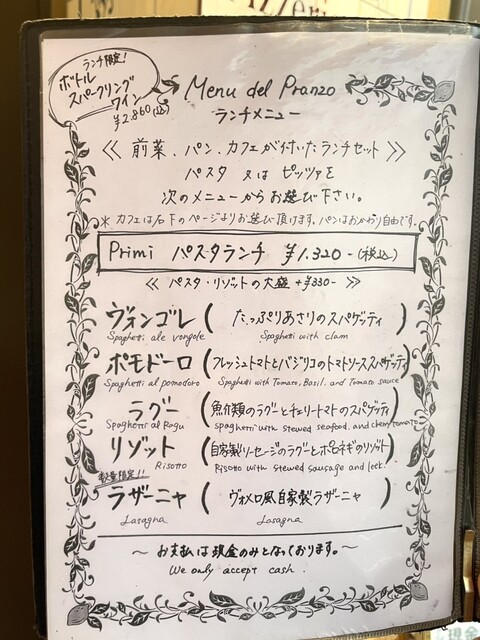 ランチ限定!
ボトル
スパークリング
ワイン
¥2.860(込)
Menu del Pranzo
ランチメニュー
≪ 前菜、パン、カフェが付いたランチセット ≫
パスタ 又は ピッツァを
次のメニューからお選び下さい。
*カフェは右下のページよりお選び頂けます。パンはおかわり自由です。
Primi パスタランチ ¥1.320-(税込)
≪ パスタ・リゾットの大盛 +¥330- ≫
ヴォンゴレ (たっぷりあさりのスパゲッティ)
Spaghetti ale vongole Spaghetti with clam
ポモドーロ (フレッシュトマトとバジリコのトマトソーススパゲッティ)
Spaghetti al pomodoro Spaghetti with Tomato, Basil. and Tomato sauce
ラグー (魚介類のラグーとチェリートマトのスパゲッティ)
Spaghetti al Ragu spaghetti with stewed seafood. and cherry tomato
リゾット (自家製ソーセージのラグーとポロネギのリゾット)
Risotto Risotto with stewed sausage and leek.
数量限定!!
ラザーニャ (ヴォメロ風自家製ラザーニャ)
Lasagna Lasagna
~ お支払は現金のみとなっております。~
We only accept cash.
現金